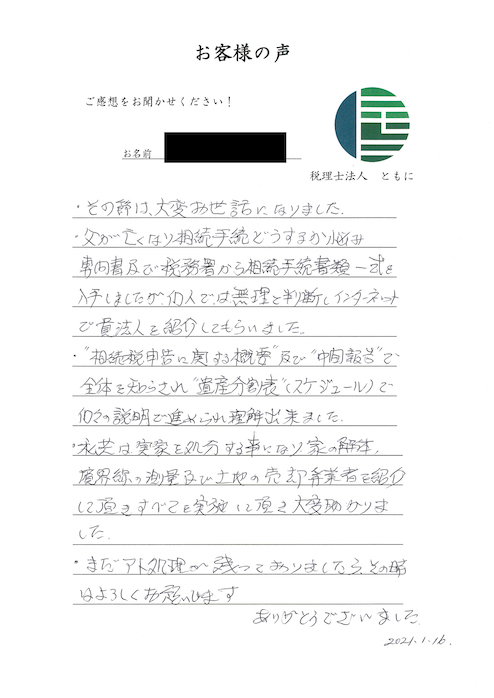 お客様の声
ご感想をお聞かせください！
お名前
税理士法人 ともに
・その節は、大変お世話になりました.
・父が亡くなり相続手続どうするか悩み
専門書及び税務署から相続手続書類一式を
入手しましたが、個人では無理と判断しインターネット
で貴法人を紹介してもらいました.
・"相続税申告に関する概要"及び"中間報告"で
全体を知らされ"遺産分割表"(スケジュール)で
個々の説明で進められ理解出来ました.
・私共は実家を処分する事になり家の解体、
境界線の測量及び土地の売却等業者を紹介
して頂きすべてを実施して頂き大変助かりま
した.
・まだアト処理が残っておりましたら、その時
はよろしくお願いします
ありがとうございました.
2021.1.16.